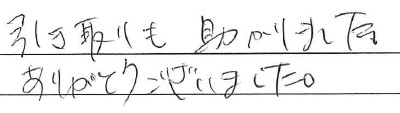 引き取りも助かりました。
ありがとうございました。